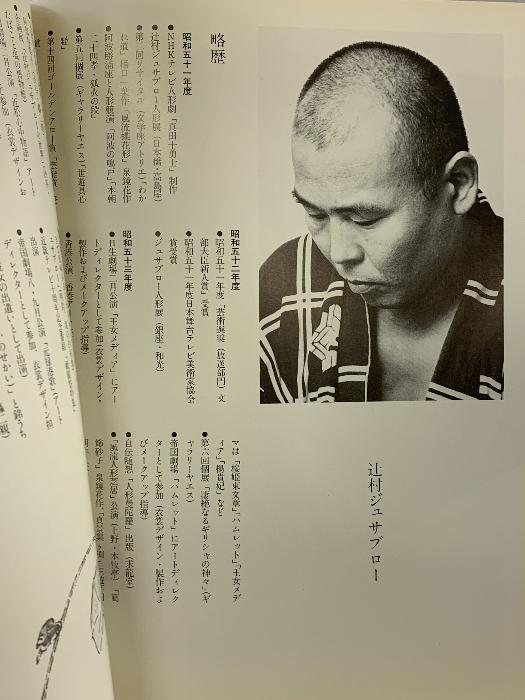 辻村ジュサブロー
略歴
昭和五十一年度
●NHKテレビ人形劇「真田十勇士」制作
●辻村ジュサブロー人形展（日本橋・高島屋）
●第二回リサイタル（文学座アトリエ）「わか
れ道」樋口一葉作「風流蝶花形」泉鏡花作
●阿波勝浦座と人形競演「阿波の鳴戸」「本朝
二十四孝・狐火の段」
●第五回個展（ギャラリーヤエス）「世遊具心
●第十四回ゴールデンアロー賞「芸能賞
昭和五十二年度
●昭和五十一年度「芸術選奨（放送部門）文
部大臣新人賞」受賞
●昭和五十一年度日本舞台テレビ美術家協会
賞受賞
●ジュサブロー人形展（銀座・和光）
昭和五十三年度
●日生劇場二月公演「王女メディア」にアー
トディレクターとして参加（衣裳デザイン・
製作およびメークアップ指導）
●香港公演
マは「桜姫東文章」「ハムレット」「王女メデ
ィア」「楊貴妃」など
●第六回個展「凄絶なるギリシャの神々」（ギ
ャラリーヤエス）
●帝国劇場「ハムレット」にアートディレク
ターとして参加（衣裳デザイン・製作およ
びメークアップ指導）
●自伝随想「人形曼陀羅」出版（求龍堂）
●「風流人形芝居」公演（上野・本牧亭）「葛
飾砂子」泉鏡花作、
出演
●近
●帝国劇場八・九月公演「元禄港歌」アート
ディレクターとして参加、衣裳デザイン担